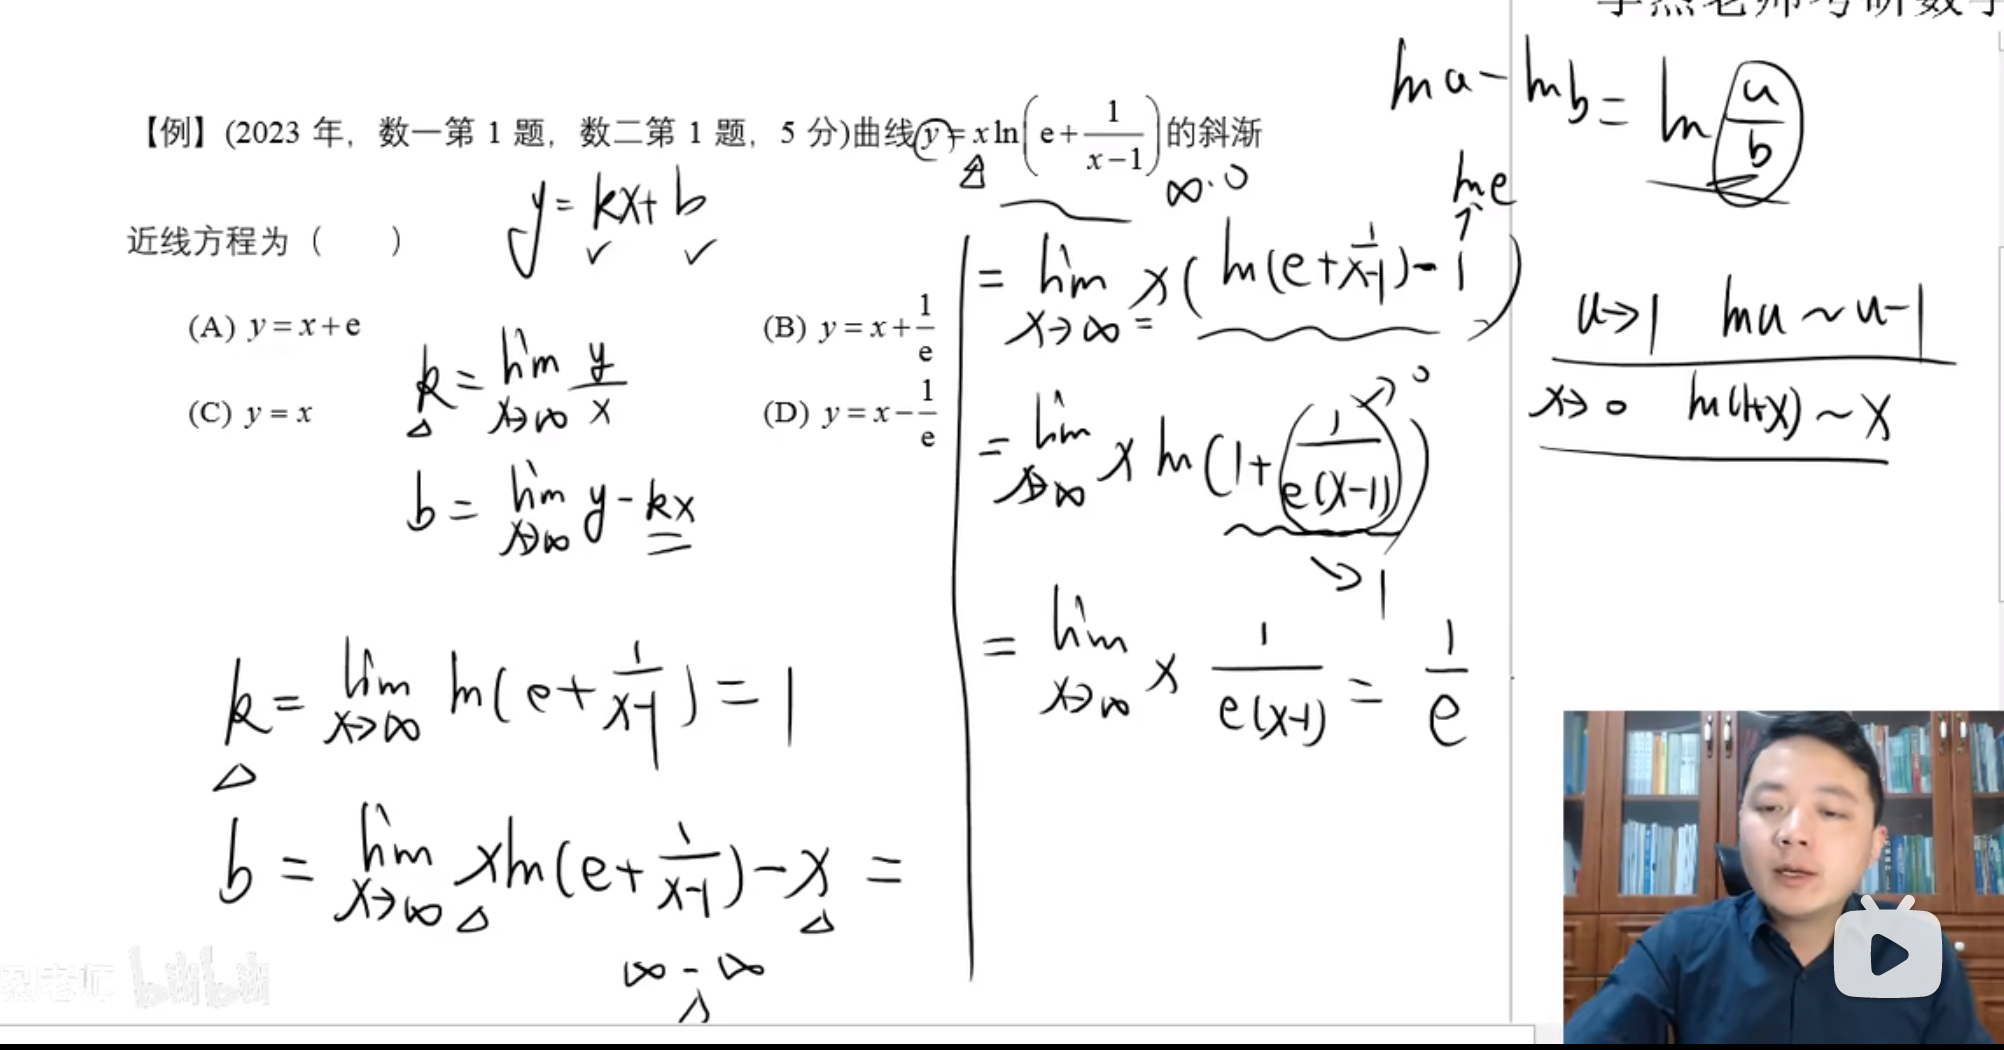 【例】(2023 年，数一第 1 题，数二第 1 题，5 分)曲线 y = x ln(e + 1/(x−1)) 的斜渐
近线方程为（　　）
(A) y = x + e
(B) y = x + 1/e
(C) y = x
(D) y = x − 1/e
y = kx + b
k = lim x→∞ y/x
b = lim x→∞ y − kx
k = lim x→∞ ln(e + 1/(x−1)) = 1
b = lim x→∞ x ln(e + 1/(x−1)) − x =
∞ − ∞
∞·0
ln e
= lim x→∞ x(ln(e + 1/(x−1)) − 1)
= lim x→∞ x ln(1 + 1/(e(x−1)))
→ 0
→ 1
= lim x→∞ x 1/(e(x−1)) = 1/e
ln a − ln b = ln a/b
u→1 ln u ~ u−1
x→0 ln(1+x) ~ x
老师考研数学
老师 bilibili